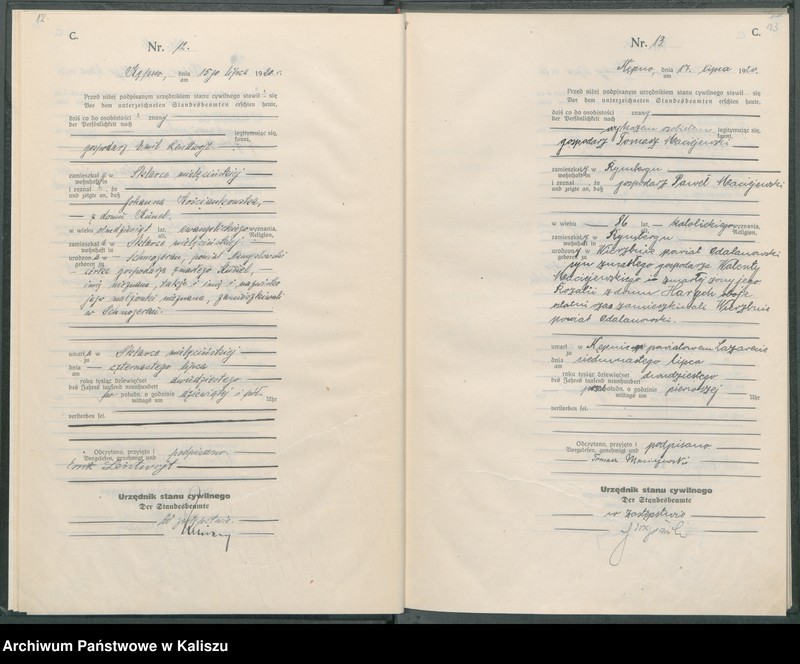 12.
C.
Nr. 12.
Kępno, dnia 15go lipca 1920.r.
am
Przed niżej podpisanym urzędnikiem stanu cywilnego stawił się
Vor dem unterzeichneten Standesbeamten erschien heute,
dziś co do osobistości znany
der Persönlichkeit nach
legitymując się,
kannt,
gospodarz Emil
zamieszkał w mielęcińskiej
wohnhaft in
i zeznał, że
und zeigte an, daß
Johanna
z domu
w wieku lat, ewangelickiego wyznania,
Religion,
zamieszkała w mielęcińskiej
wohnhaft in
urodzona w powiat
geboren zu
córka gospodarza
imię nieznane, także i imię i nazwisko
jego małżonki nieznane, zamieszkiwali
w
umarła w mielęcińskiej
zu
dnia czternastego lipca
am
roku tysiąc dziewięćset dwudziestego
des Jahres tausend neunhundert
po połudn. o godzinie dziewiątej i pół
mittags um Uhr
verstorben sei.
Odczytano, przyjęto i podpisano
Vorgelesen, genehmigt und
Emil
Urzędnik stanu cywilnego
Der Standesbeamte
W zastępstwie
C.
13
Nr. 13
Kępno, dnia 17. lipca 1920.
am
Przed niżej podpisanym urzędnikiem stanu cywilnego stawił się
Vor dem unterzeichneten Standesbeamten erschien heute,
dziś co do osobistości znany
der Persönlichkeit nach
legitymując się,
kannt,
gospodarz Tomasz Maciejewski
zamieszkały w Rymbergu
wohnhaft in
i zeznał, że gospodarz Paweł Maciejewski
und zeigte an, daß
w wieku 86 lat, katolickiego wyznania,
Religion,
zamieszkały w Rymbergu
wohnhaft in
urodzony w Wierzbnie powiat Odalanowski
geboren zu
syn zmarłego gospodarza Walenty
Maciejewskiego i zmarłej żony jego
Rozalii z domu Harych oboje
ostatni czas zamieszkiwali Wierzbnie
powiat Odalanowski.
umarł w Kępnie w powiatowem Lazarecie
zu
dnia siedmnastego lipca
am
roku tysiąc dziewięćset dwudziestego
des Jahres tausend neunhundert
przedpołudn. o godzinie pierwszej
mittags um Uhr
verstorben sei.
Odczytano, przyjęto i podpisano
Vorgelesen, genehmigt und
Tomasz Maciejewski
Urzędnik stanu cywilnego
Der Standesbeamte
w zastępstwie
Archiwum Państwowe w Kaliszu